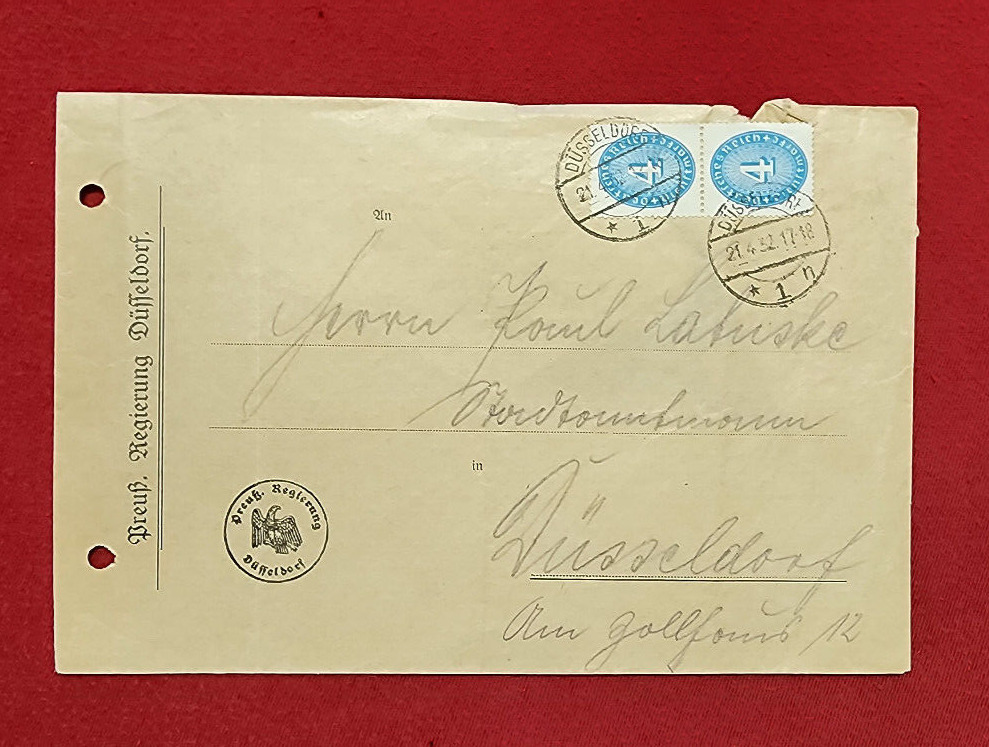 Preuß. Regierung Düsseldorf.
DÜSSELDORF
21.4.
* 1 n
4
Deutsches Reich + Dienstmarke +
4
Deutsches Reich + Dienstmarke +
DÜSSELDORF
21.4.32.17-18
* 1 n
An
Herrn Paul Latuske
Stadtamtmann
in
Düsseldorf
Am Zollhaus 12
Preuß. Regierung
Düsseldorf